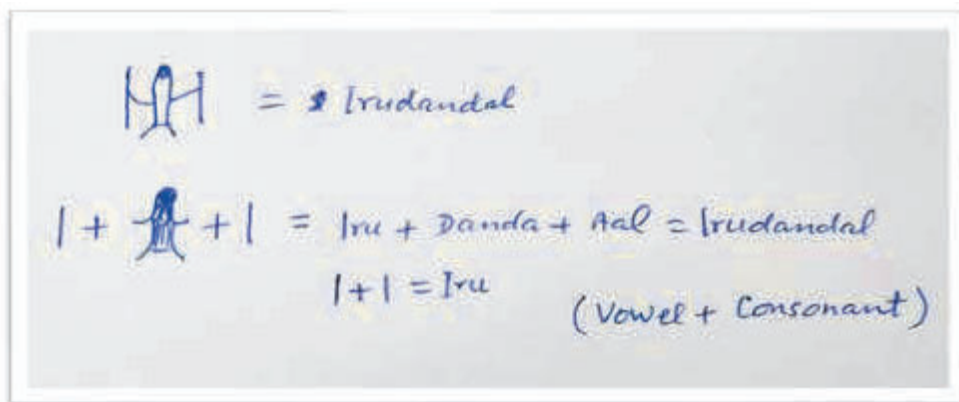 = Irudandal
| + + | = Iru + Danda + Aal = Irudandal
| + | = Iru
(Vowel + Consonant)